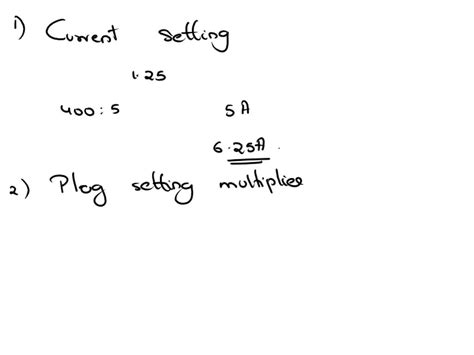 1) Current setting
1.25
400:5 5A
6.25A
2) Plug setting multiplier